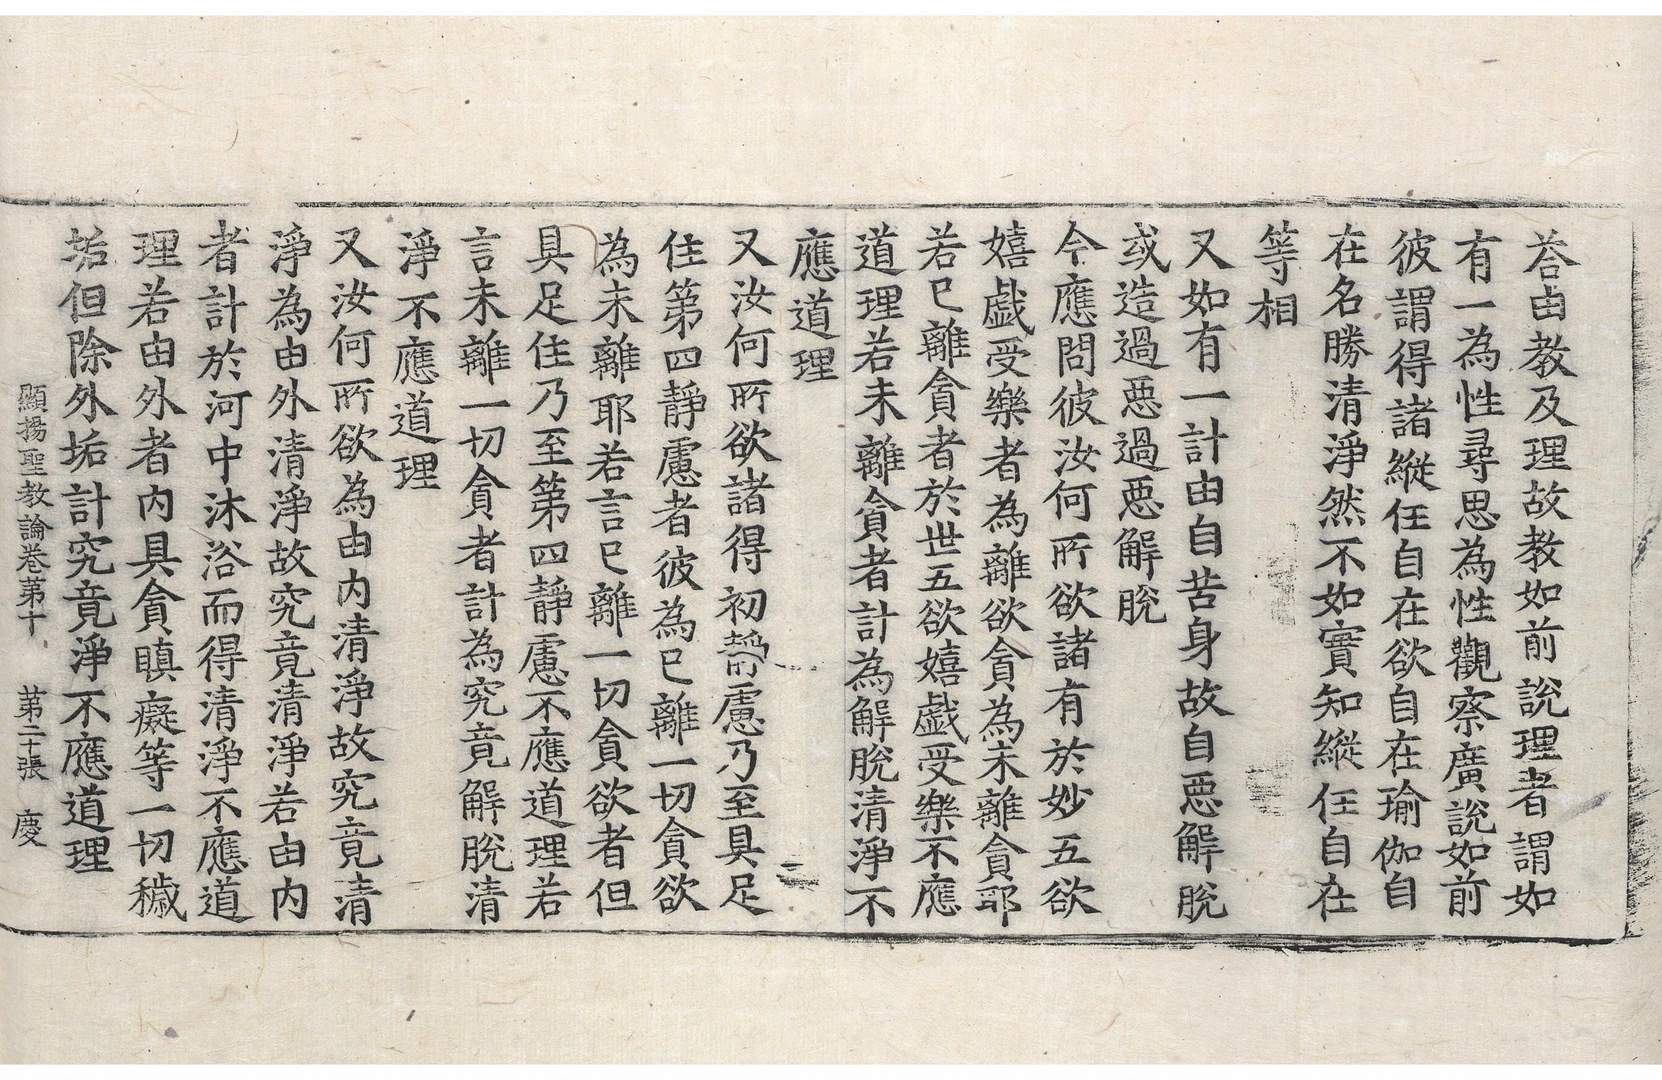 荅由教及理故教如前說理者謂如
有一為性尋思為性觀察廣說如前
彼謂得諸縱任自在欲自在瑜伽自
在名勝清淨然不如實知縱任自在
等相
又如有一計由自苦身故自惡解脫
或造過惡過惡解脫
今應問彼汝何所欲諸有於妙五欲
嬉戱受樂者為離欲貪為未離貪耶
若已離貪者於世五欲嬉戱受樂不應
道理若未離貪者計為解脫清淨不
應道理
又汝何所欲諸得初靜慮乃至具足
住第四靜慮者彼為已離一切貪欲
為未離耶若言已離一切貪欲者但
具足住乃至第四靜慮不應道理若
言未離一切貪者計為究竟解脫清
淨不應道理
又汝何所欲為由内清淨故究竟清
淨為由外清淨故究竟清淨若由内
者計於河中沐浴而得清淨不應道
理若由外者内具貪瞋癡等一切穢
垢但除外垢計究竟淨不應道理
顯揚聖教論卷第十 第二十張 慶